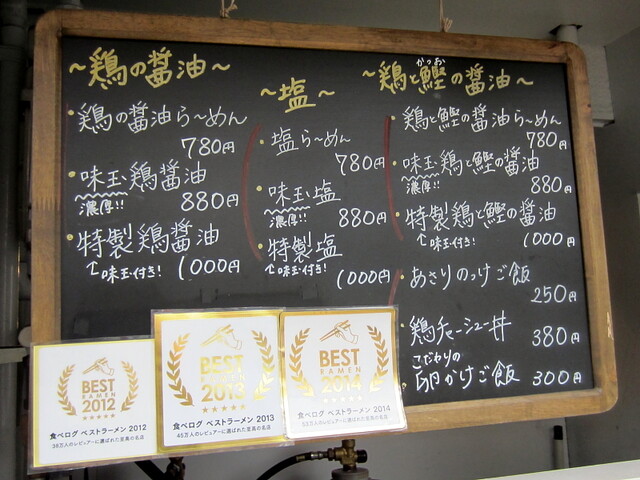 ～鶏の醤油～
・鶏の醤油ら～めん
780円
・味玉鶏醤油
濃厚!!
880円
・特製鶏醤油
↑味玉付き!
1000円
～塩～
・塩ら～めん
780円
・味玉塩
濃厚!!
880円
・特製塩
↑味玉付き!
1000円
かつお
～鶏と鰹の醤油～
・鶏と鰹の醤油ら～めん
780円
・味玉鶏と鰹の醤油
濃厚!!
880円
・特製鶏と鰹の醤油
↑味玉付き!
1000円
・あさりのっけご飯
250円
・鶏チャーシュー丼 380円
こだわりの
・卵かけご飯 300円
BEST
RAMEN
2012
食べログ ベストラーメン 2012
38万人のレビュアーに選ばれた至高の名店
BEST
RAMEN
2013
食べログ ベストラーメン 2013
45万人のレビュアーに選ばれた至高の名店
BEST
RAMEN
2014
食べログ ベストラーメン 2014
53万人のレビュアーに選ばれた至高の名店